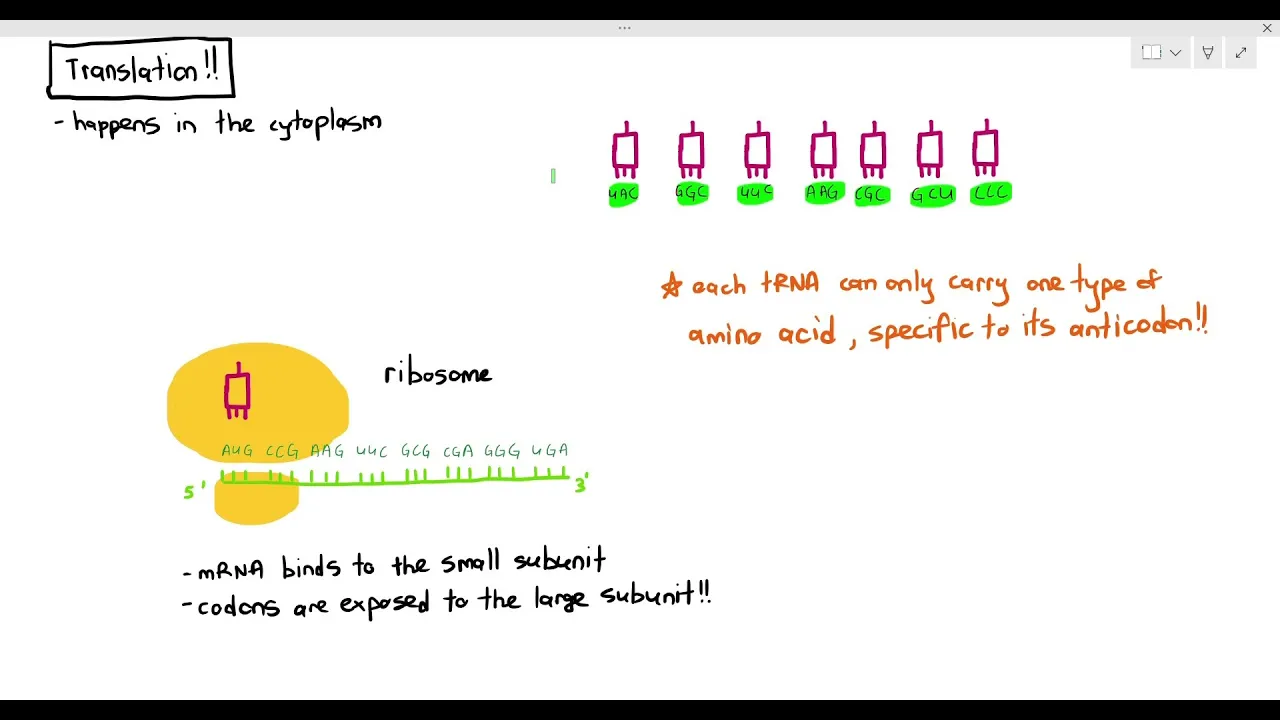 Translation!!
- happens in the cytoplasm
UAC GGC UUC AAG CGC GCU CCC
☆ each tRNA can only carry one type of
amino acid, specific to its anticodon!!
ribosome
AUG CCG AAG UUC GCG CGA GGG UGA
5' 3'
- mRNA binds to the small subunit
- codons are exposed to the large subunit!!